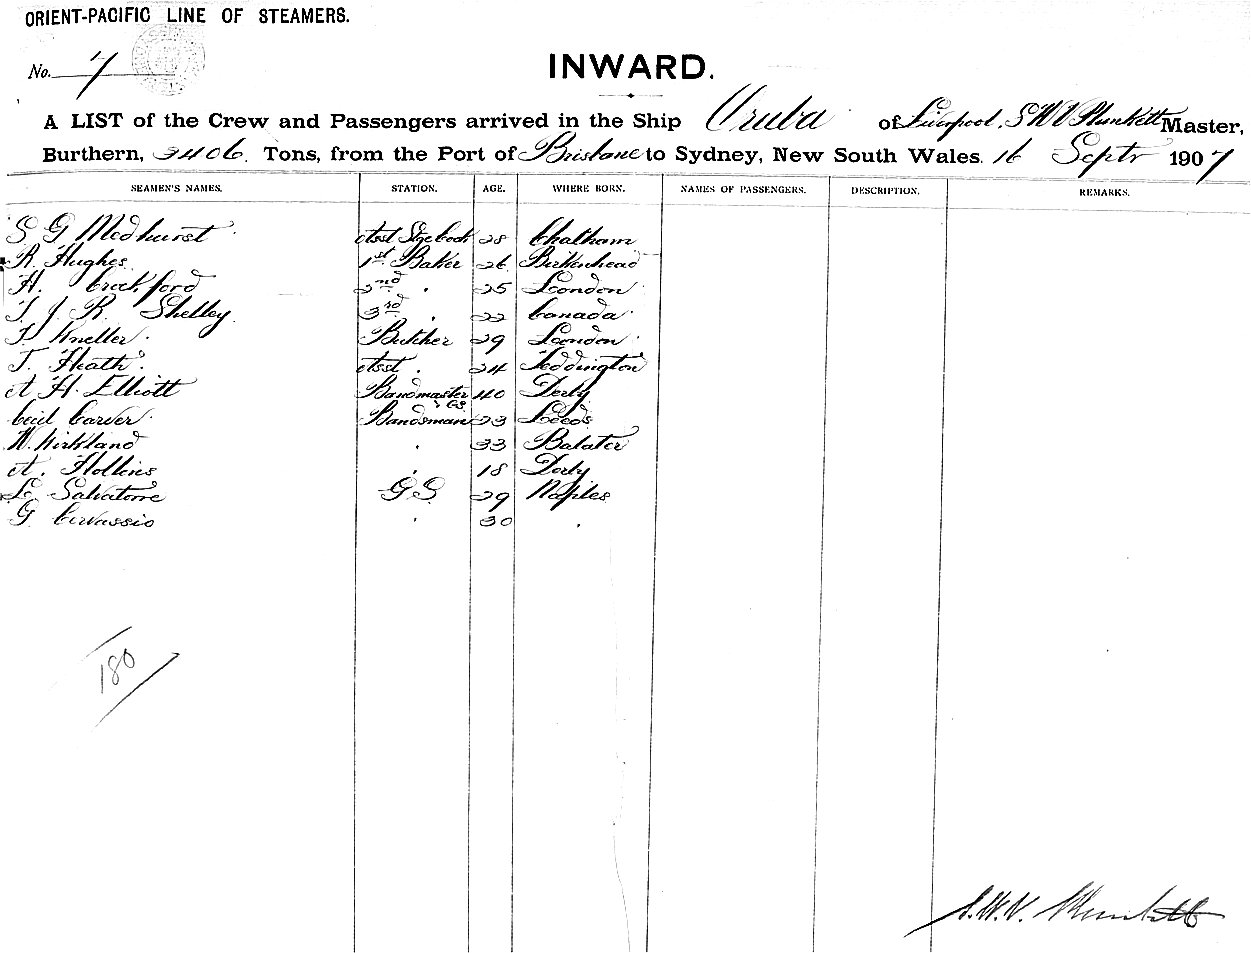 ORIENT-PACIFIC LINE OF STEAMERS.
No. 7
INWARD.
A LIST of the Crew and Passengers arrived in the Ship Oruba of Liverpool, S W V Plunkett Master,
Burthern, 3406 Tons, from the Port of Brisbane to Sydney, New South Wales. 16 Septr 1907
SEAMEN'S NAMES. STATION. AGE. WHERE BORN. NAMES OF PASSENGERS. DESCRIPTION. REMARKS.
S G Medhurst Asst Stge Cook 28 Chatham
R. Hughes 1st Baker 26 Birkenhead
H. Crockford 2nd " 25 London
T. J. R. Shelley 3rd " 22 Canada
F. Kneller Butcher 29 London
T. Heath Asst " 24 Teddington
A H. Elliott Bandmaster & GS 40 Derby
Cecil Carver Bandsman 23 Leeds
W. Kirkland " 33 Balater
A. Hollins " 18 Derby
L. Salvatorre G.S. 29 Naples
G. Cervassio " 30 "
180
S.W.V. Plunkett